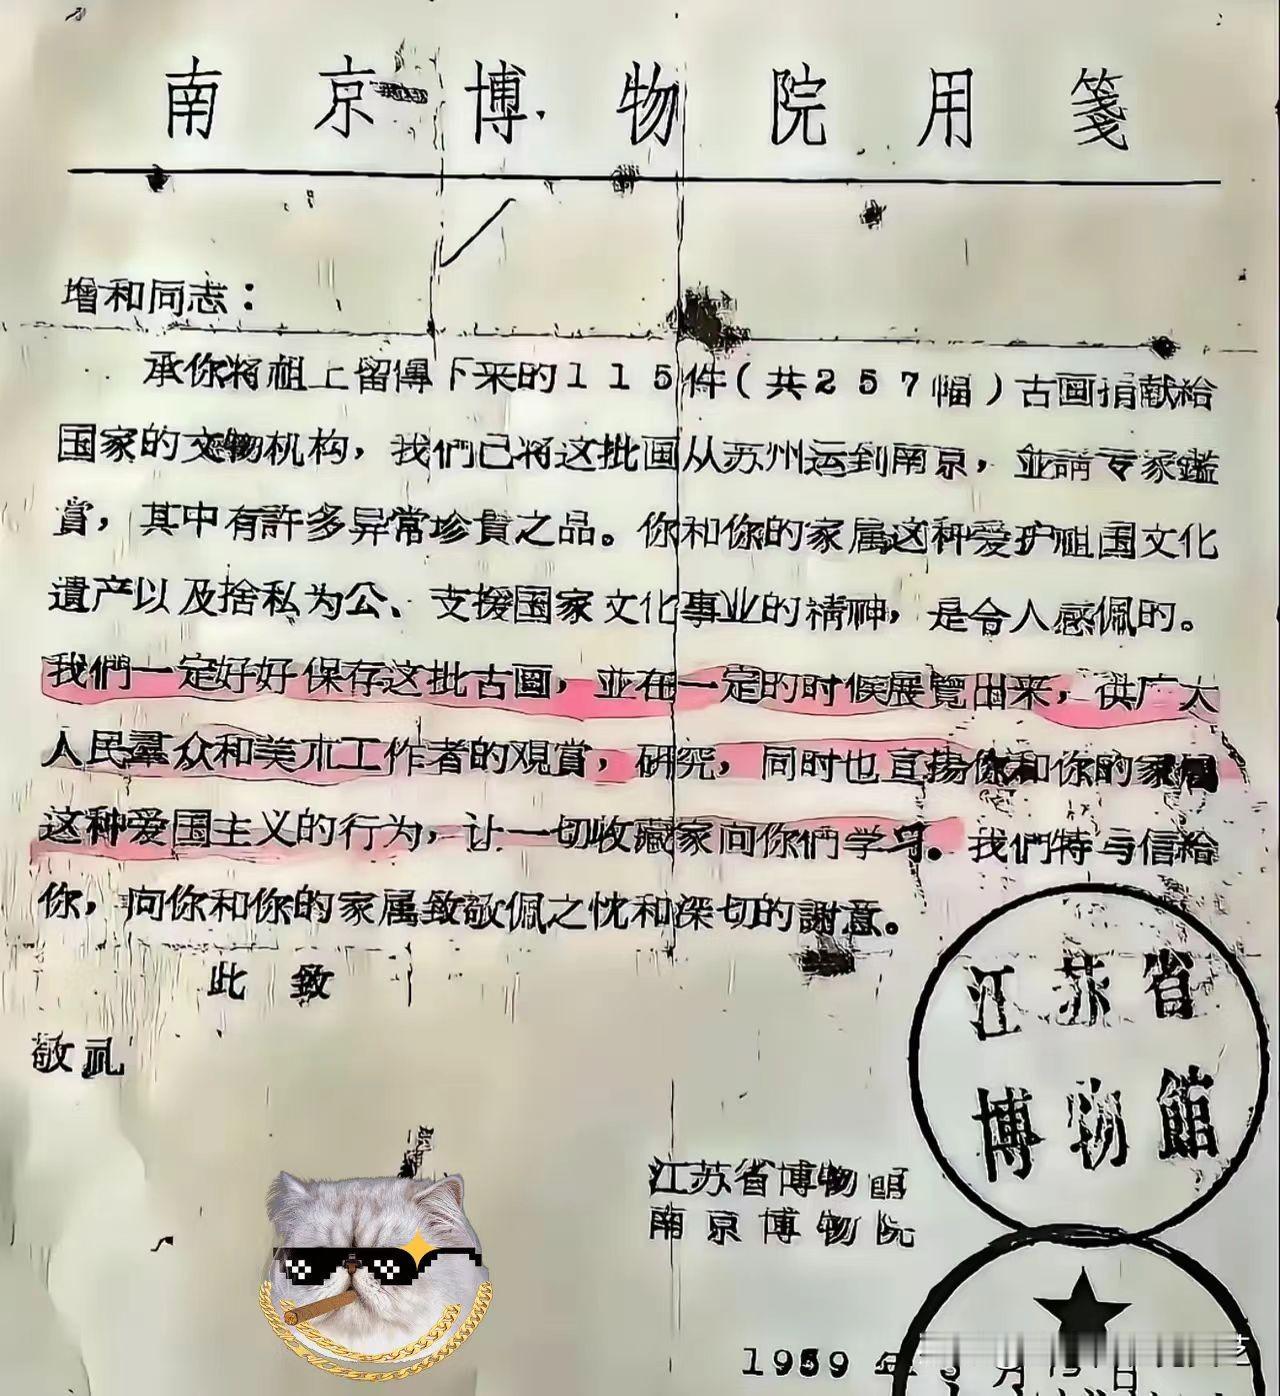 南京博物院用箋
增和同志：
承你将祖上留傳下来的115件(共257幅)古画捐献給
国家的文物机构，我們已将这批画从苏州运到南京，並請专家鑑
賞，其中有許多异常珍貴之品。你和你的家属这种爱护祖国文化
遺产以及捨私为公、支援国家文化事业的精神，是令人感佩的。
我們一定好好保存这批古画，並在一定的时候展覽出来，供广大
人民羣众和美朮工作者的观賞，研究，同时也宣扬你和你的家属
这种爱国主义的行为，让一切收藏家向你們学习。我們特与信給
你，向你和你的家属致敬佩之忱和深切的謝意。
此致
敬礼
江苏省
博物館
江苏省博物館
南京博物院
1959年 月 日